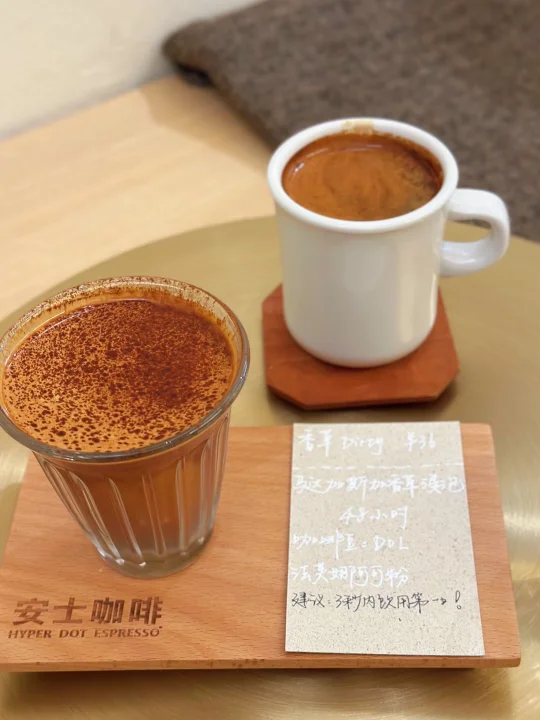 香草 Dirty ¥36
马达加斯加香草浸泡
48小时
咖啡豆: DOL
法芙娜可可粉
建议: 3秒内饮用第一口!
安士咖啡
HYPER DOT ESPRESSO